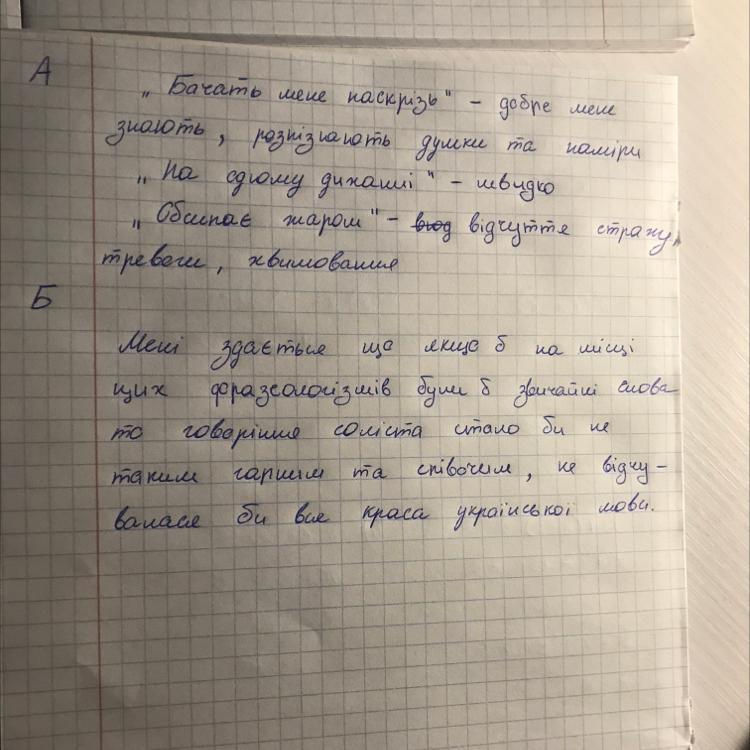 А
„Бачать мене наскрізь" - добре мене
знають, розпізнають думки та наміри
„На одному диханні" - швидко
„Обсипає жаром" - відчуття страху,
тревоги, хвилювання
Б
Мені здається що якщо б на місці
цих фразеологізмів були б звичайні слова
то говоріння соліста стало би не
таким гарним та співочим, не відчу-
валася би вся краса української мови.